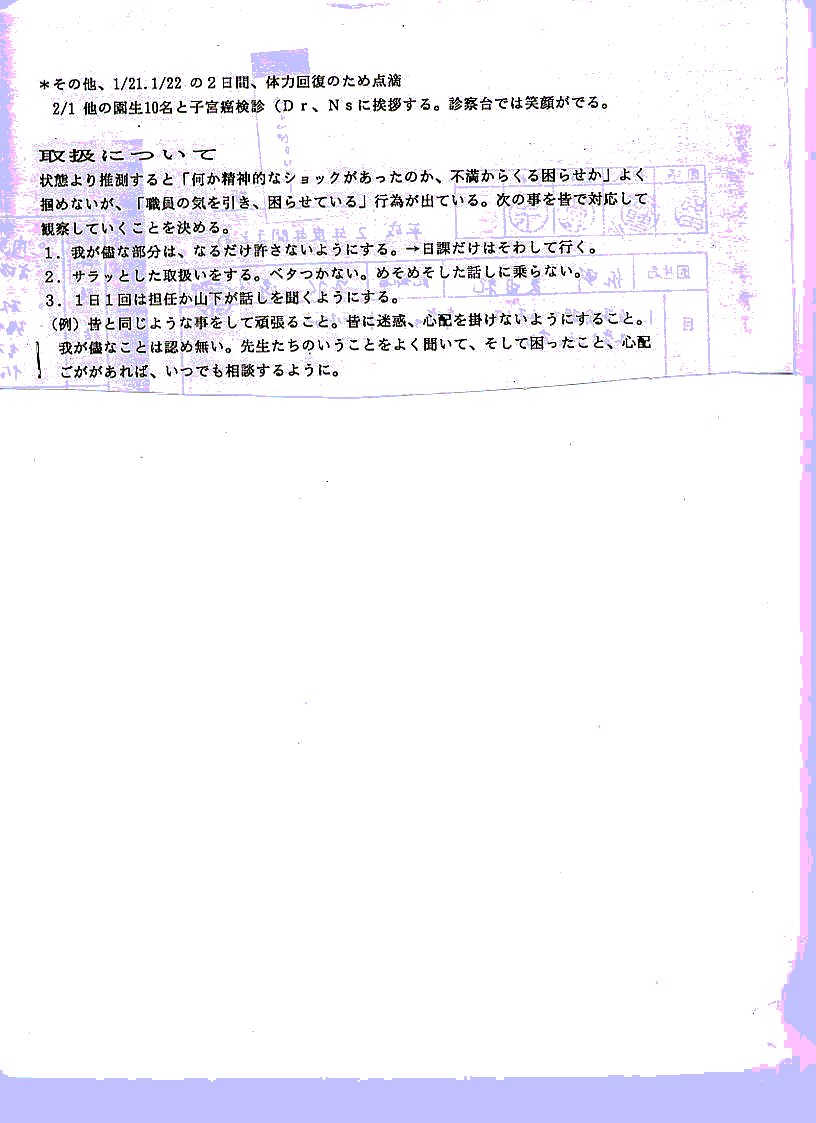 ＊その他、1/21.1/22 の２日間、体力回復のため点滴
2/1 他の園生10名と子宮癌検診（Ｄｒ、Ｎｓに挨拶する。診察台では笑顔がでる。
取扱について
状態より推測すると「何か精神的なショックがあったのか、不満からくる困らせか」よく
掴めないが、「職員の気を引き、困らせている」行為が出ている。次の事を皆で対応して
観察していくことを決める。
１．我が儘な部分は、なるだけ許さないようにする。→日課だけはそわして行く。
２．サラッとした取扱いをする。ベタつかない。めそめそした話しに乗らない。
３．１日１回は担任か山下が話しを聞くようにする。
（例）皆と同じような事をして頑張ること。皆に迷惑、心配を掛けないようにすること。
我が儘なことは認め無い。先生たちのいうことをよく聞いて、そして困ったこと、心配
ごががあれば、いつでも相談するように。